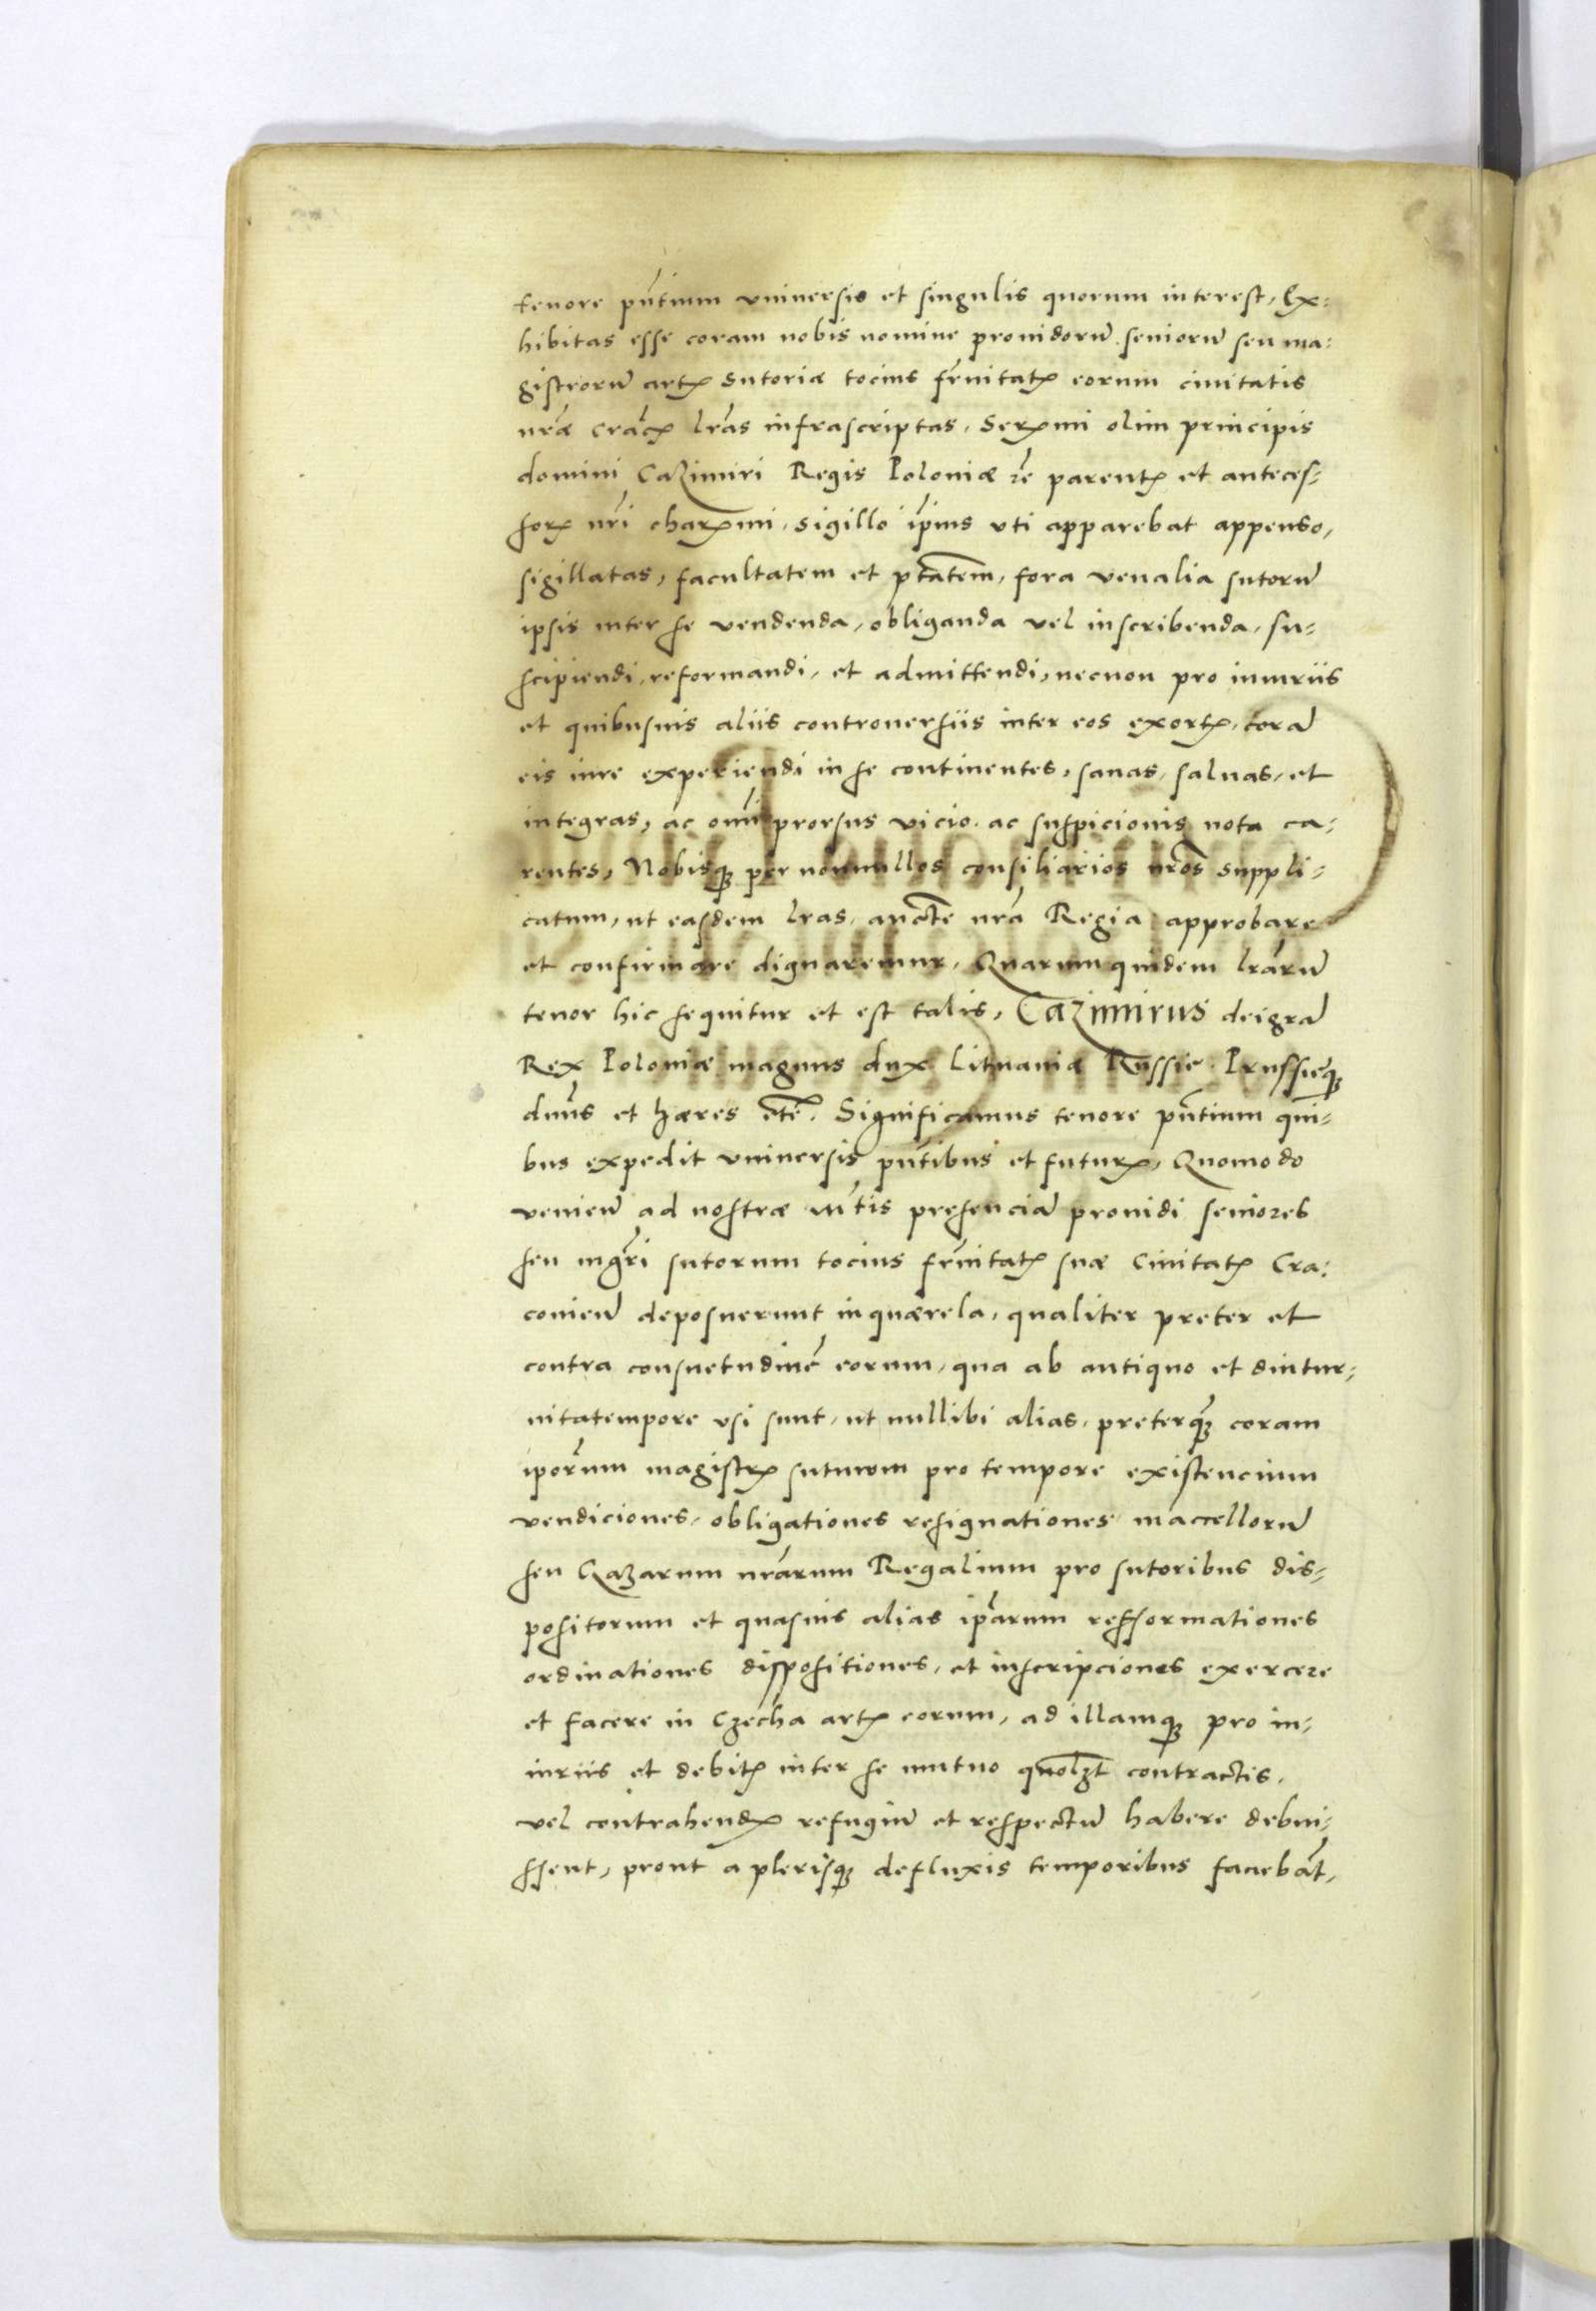 tenore pn̄tium vniuersis et singulis quorum interest, Ex:
hibitas esse coram nobis nomine prouidorū seniorū seu ma:
gistrorū artꝭ sutoriæ tocius fr̄nitatꝭ eorum ciuitatis
nr̄æ Crac̄ꝭ lr̄as infrascriptas, Serꝭmi olim principis
domini Cazimiri Regis Poloniæ ꝛc̄ parentꝭ et anteces-
sorꝭ nr̄i charꝭmi, sigillo ip̄ius vti apparebat appenso,
sigillatas, facultatem et ptātem, fora venalia sutorū
ipsis inter se vendenda, obliganda vel inscribenda, su-
scipiendi, reformandi, et admittendi, necnon pro iniuriis
et quibusuis aliis controuersiis inter eos exortꝭ, corā
eis iure experiendi in se continentes, sanas, saluas, et
integras, ac omi̅ prorsus vicio ac suspicionis nota ca-
rentes, Nobisqꝫ per nonnullos consiliarios nr̄os suppli-
catum, ut easdem lras, aucte̅ nr̄a Regia approbare
et confirmare dignaremur, Quarum quidem lr̄arū
tenor hic sequitur et est talis, Cazimirus dei grā
Rex Poloniæ magnus dux Lituaniæ Russie Prussieqꝫ
dn̄us et hæres etc̄. Significamus tenore pn̄tium qui-
bus expedit vniuersis pn̄tibus et futurꝭ, Quomodo
veniēn ad nostræ M̄tis presenciā prouidi seniores
seu mgr̄i sutorum tocius fr̄nitatꝭ suæ Ciuitatꝭ Cra:
couien̄ deposuerunt in quærela, qualiter preter et
contra consuetudinē eorum, qua ab antiquo et diutur-
nitatempore vsi sunt, ut nullibi alias, preterqꝫ coram
ip̄orum magistrꝭ suturom pro tempore existencium
vendiciones, obligationes resignationes maccellorū
seu Cazarum nr̄arum Regalium pro sutoribus dis-
positorum et quasuis alias ip̄arum refformationes
ordinationes dispositiones, et inscripciones exercere
et facere in Czecha artꝭ eorum, ad illamqꝫ pro in-
iuriis et debitꝭ inter se mutuo quolꝫt contractis,
vel contrahendꝭ refugiū et respectū habere debui-
ssent, prout a plerisqꝫ defluxis temporibus faciebāt,